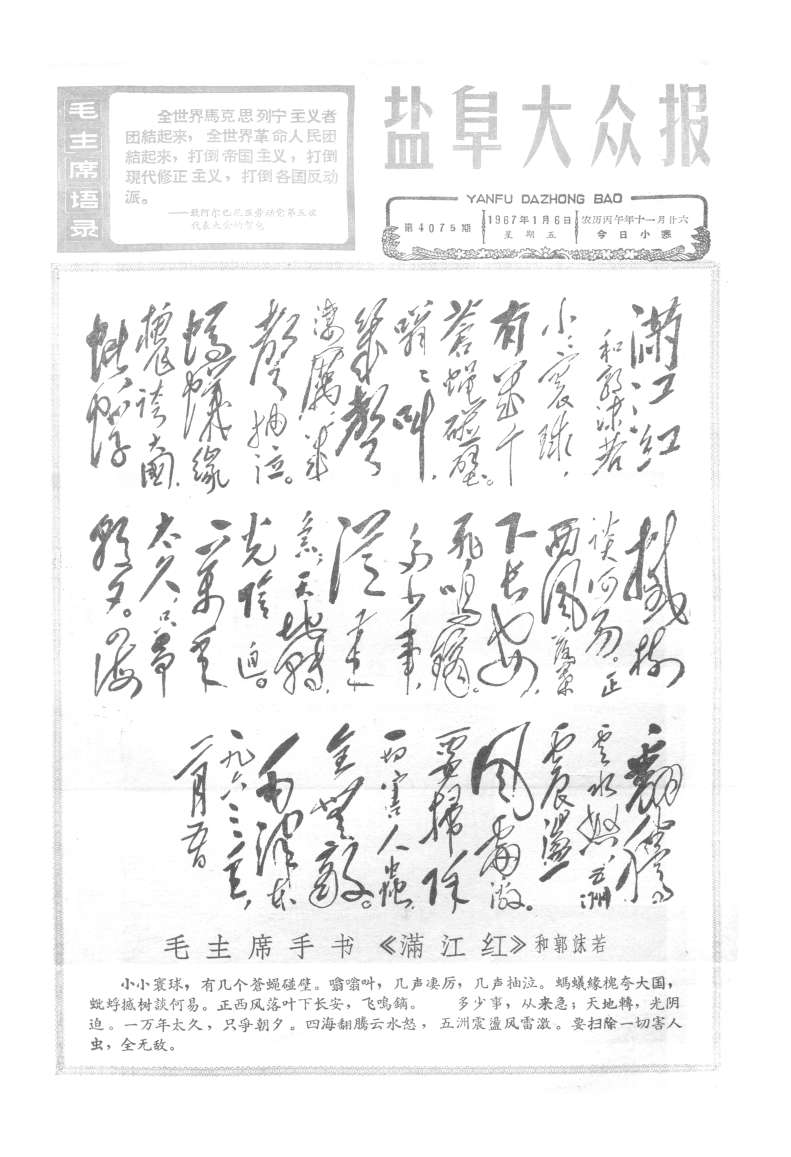 毛主席语录
全世界馬克思列宁主义者
团結起来，全世界革命人民团
結起来，打倒帝国主义，打倒
現代修正主义，打倒各国反动
派。
——致阿尔巴尼亚劳动党第五次
代表大会的賀电
盐阜大众报
YANFU DAZHONG BAO
第4075期
1967年1月6日
星期五
农历丙午年十一月廿六
今日小寒
滿江红
和郭沫若
小小寰球，
有几个
苍蝇碰壁。
嗡嗡叫，
几声
凄厉，几
声抽泣。
螞蟻缘
槐夸大国，
蚍蜉
撼树
談何易。正
西风落叶
下长安，
飞鸣镝。
多少事，
从来
急；天地轉，
光阴迫。
一万年
太久，只争
朝夕。四海
翻騰
云水怒，五洲
震盪
风雷激。
要掃除
一切害人虫，
全无敌。
毛泽东
一九六三年
一月九日
毛主席手书《滿江红》和郭沫若
小小寰球，有几个苍蝇碰壁。嗡嗡叫，几声凄厉，几声抽泣。螞蟻緣槐夸大国，
蚍蜉撼树談何易。正西风落叶下长安，飞鸣鏑。　　多少事，从来急；天地轉，光阴
迫。一万年太久，只爭朝夕。四海翻騰云水怒，五洲震盪风雷激。要扫除一切害人
虫，全无敌。